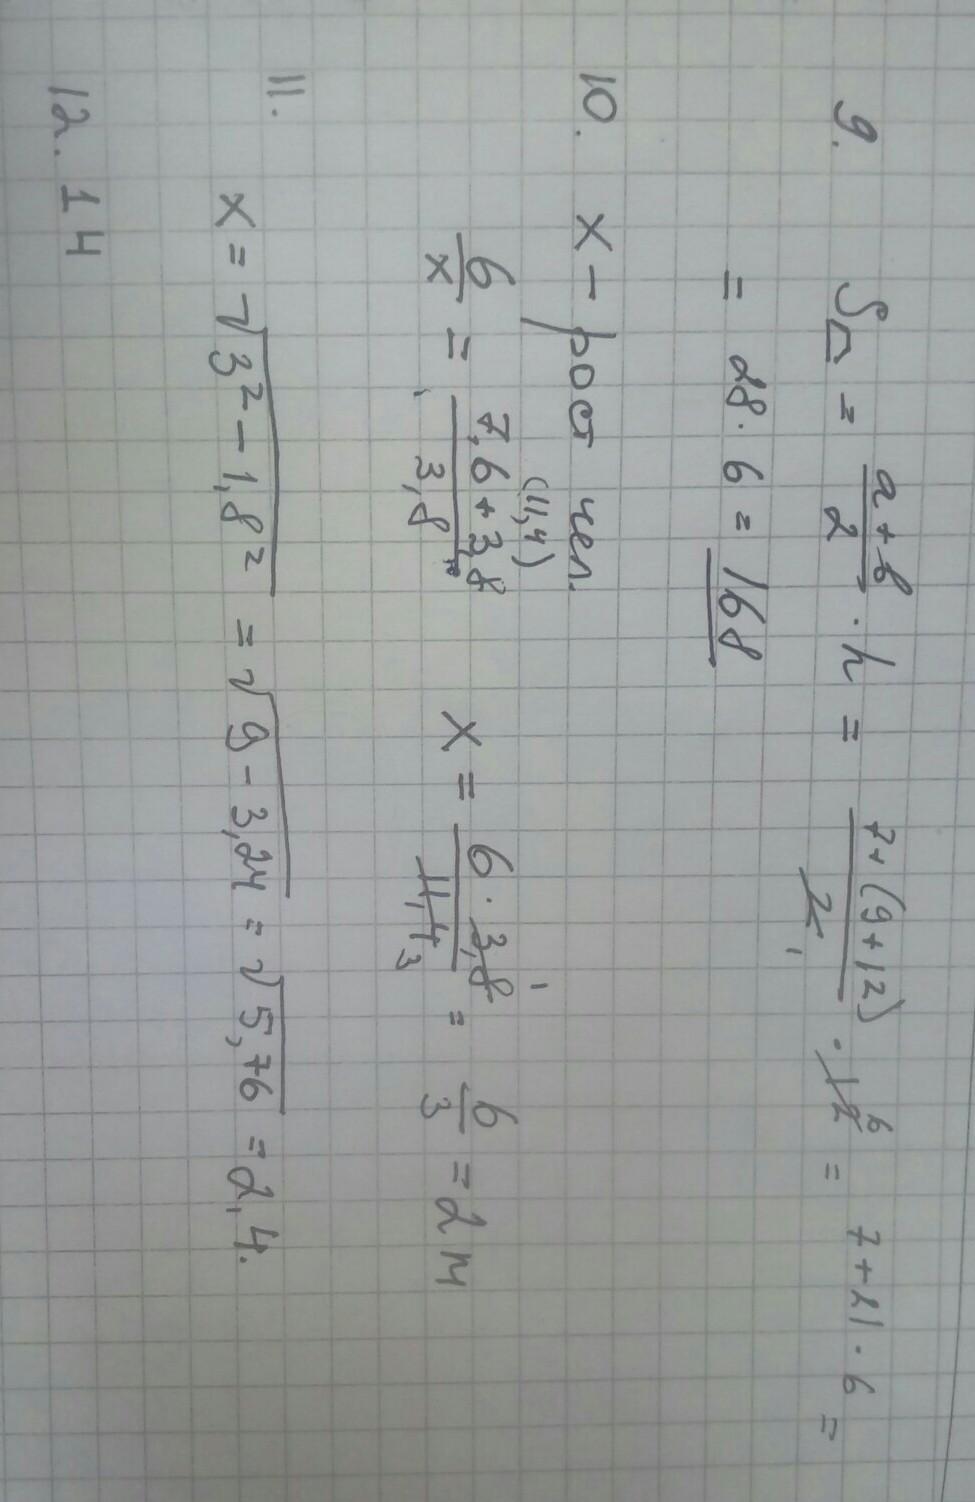 9. S△ = a+b/2 · h = 7+(9+12)/2 1 · 12 6 = 7+21·6 =
= 28·6 = 168
10. x – рост чел.
(11,4)
6/x = 7,6+3,8/3,8 x = 6·3,8 1/11,4 3 = 6/3 = 2м
11. x = √3²–1,8² = √9–3,24 = √5,76 = 2,4.
12. 14